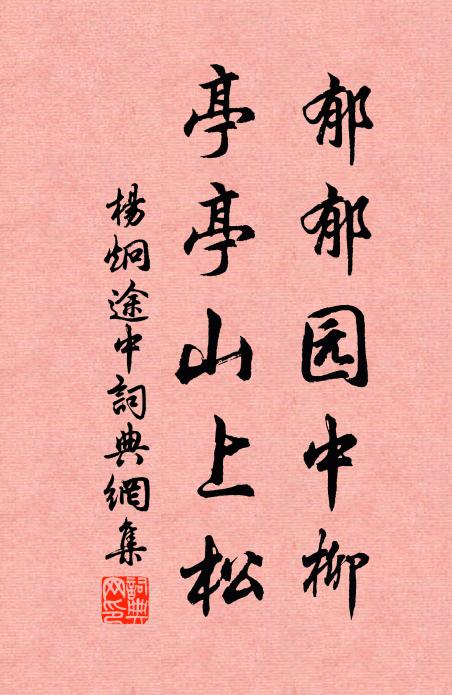 郁郁园中柳
亭亭山上松
楊炯途中詞典網集
詞典網印